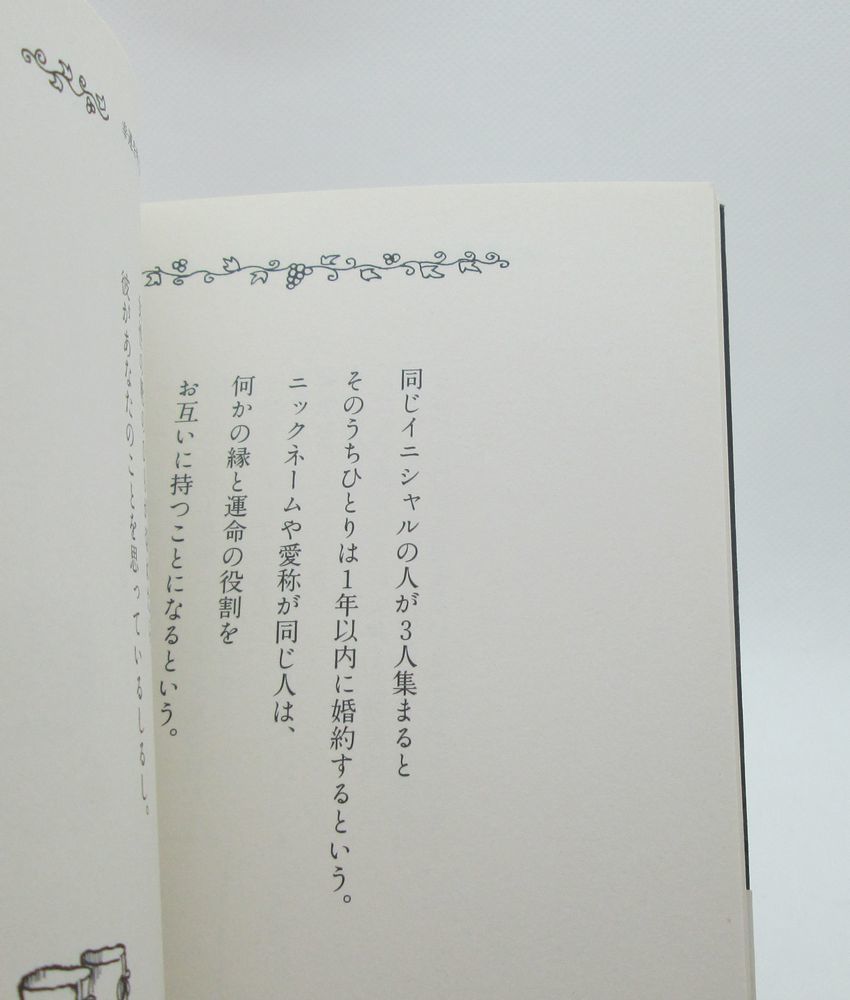 同じイニシャルの人が3人集まると
そのうちひとりは1年以内に婚約するという。
ニックネームや愛称が同じ人は、
何かの縁と運命の役割を
お互いに持つことになるという。
彼があなたのことを思っているしるし。